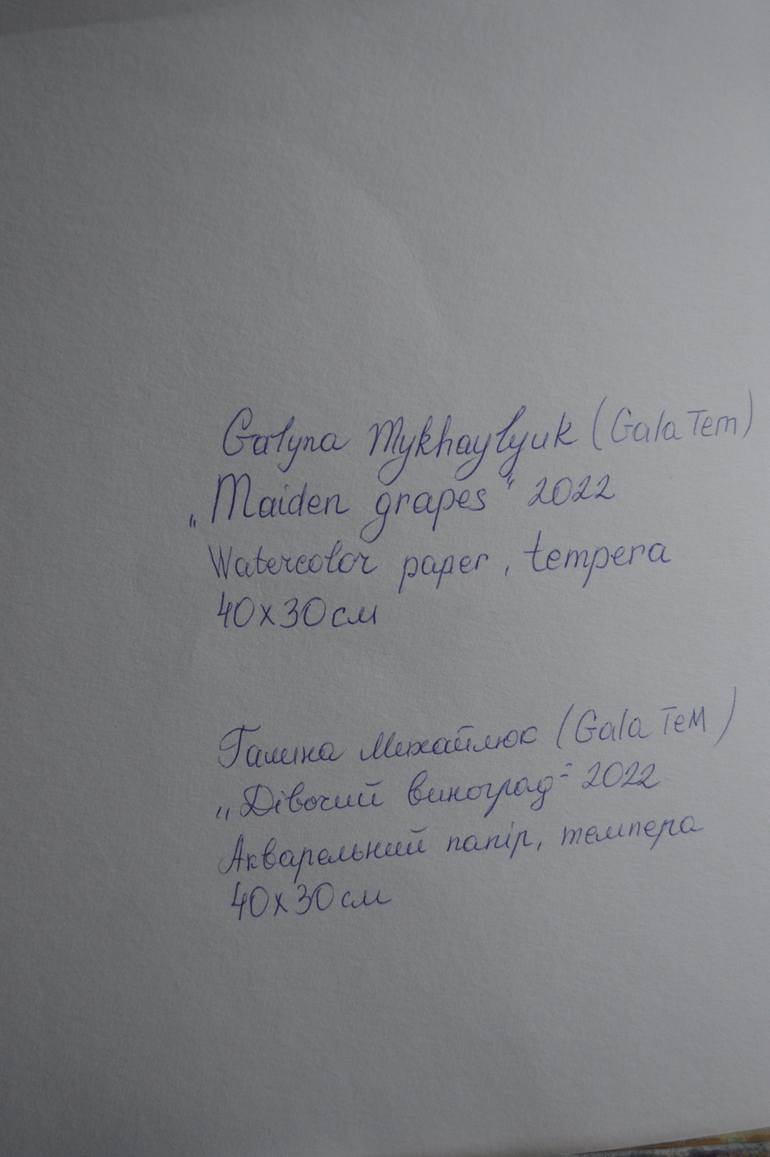 Galyna Mykhaylyuk (Gala Tem)
„Maiden grapes" 2022
Watercolor paper, tempera
40x30см
Галина Михайлюк (Gala Tем)
„Дівочий виноград" 2022
Акварельний папір, темпера
40x30см